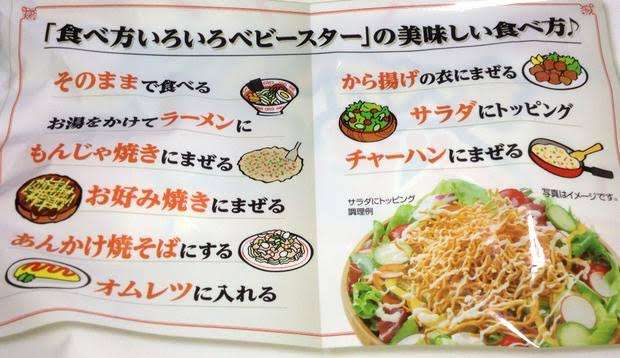 「食べ方いろいろベビースター」の美味しい食べ方♪
そのままで食べる
お湯をかけてラーメンに
もんじゃ焼きにまぜる
お好み焼きにまぜる
あんかけ焼そばにする
オムレツに入れる
から揚げの衣にまぜる
サラダにトッピング
チャーハンにまぜる
サラダにトッピング
調理例
写真はイメージです。